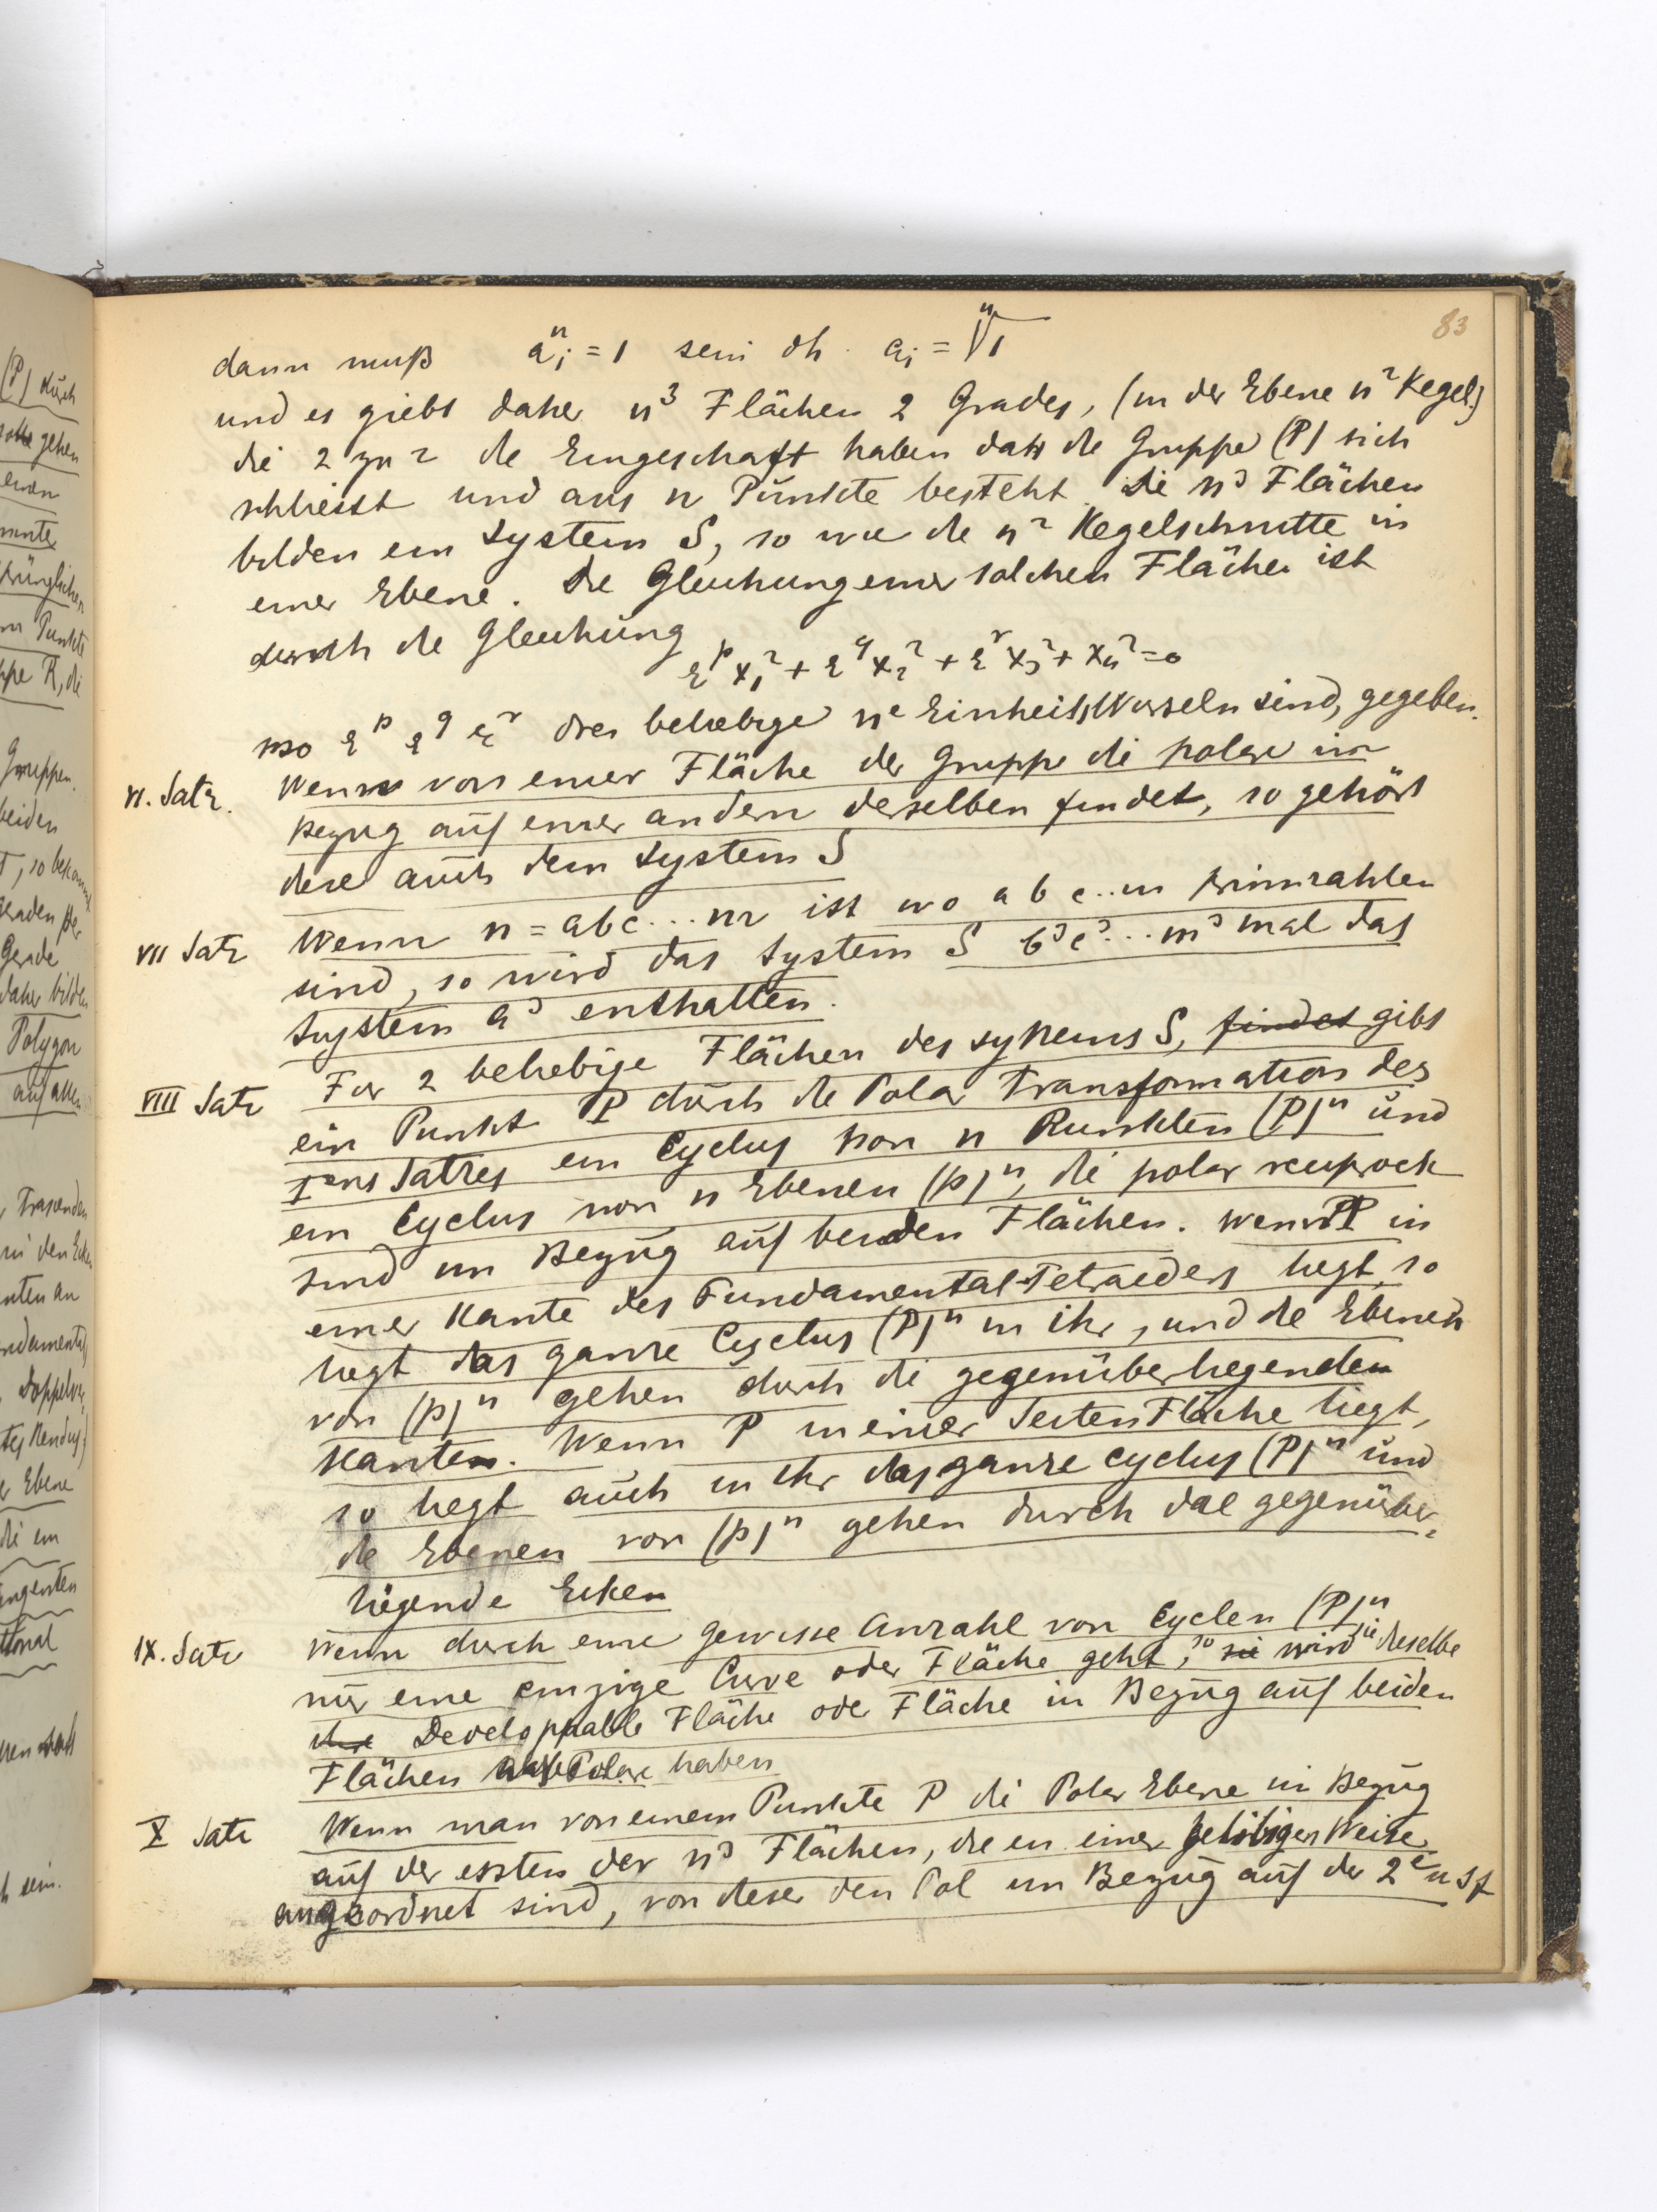 83
dann muß a_i^n = 1 sein dh. a_i = \sqrt[n]{1}
und es giebt daher n^3 Flächen 2 Grades, (in der Ebene n^2 Kegel.)
die 2 zu 2 die Eingeschaft haben daß die Gruppe (P) sich
schliesst und aus n Punkte besteht. Die n^3 Flächen
bilden ein System S, so wie die n^2 Kegelschnitte in
einer Ebene. Die Gleichung einer solchen Fläche ist
durch die Gleichung
ε^p x_1^2 + ε^q x_2^2 + ε^r x_3^2 + x_4^2 = 0
wo ε^p ε^q ε^r drei beliebige n^e Einheitswurzeln sind, gegeben.
VI. Satz. Wenn von einer Fläche der Gruppe die polare in
Bezug auf einer andern derselben findet, so gehört
diese auch dem System S
VII Satz Wenn n = abc...m ist wo a b c..m primzahlen
sind, so wird das System S b^3c^3...m^3 mal das
System a^3 enthalten.
VIII Satz Für 2 beliebige Flächen des systems S, findet gibt
ein Punkt P durch die Polar Transformation des
I^ens Satzes ein Cyclus von n Punkten (P)^n und
ein Cyclus von n Ebenen (p)^n, die polar reciprock
sind im Bezug auf beiden Flächen. Wenn P in
einer Kante des Fundamental-Tetraeders liegt, so
liegt das ganze Cyclus (P)^n in ihr, und die Ebenen
von (p)^n gehen durch die gegenüberliegenden
Kanten. Wenn P in einer Seiten Fläche liegt,
so liegt auch in ihr das ganze cyclus (P)^n und
die Ebenen von (p)^n gehen durch die gegenüber-
liegende Ecken
IX. Satz Wenn durch eine gewisse Anzahl von Cyclen (P)^n
nur eine einzige Curve oder Fläche geht, so sie wird sie dieselbe
ihre Developpable Fläche oder Fläche in Bezug auf beiden
Flächen Polare haben
X Satz Wenn man von einem Punkte P die Polar Ebene in Bezug
auf der ersten der n^3 Flächen, die in einer beliebiger Weise
angeordnet sind, von dieser den Pol im Bezug auf der 2^e u s f